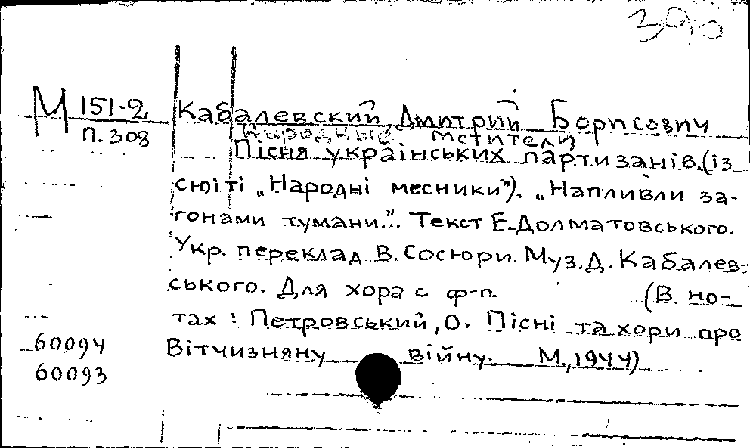 390
М 151-2
п. 308
Кабалевский Дмитрий Борисович
Народные мстители
Пісня українських партизанів.(із
сюїті „Народні месники”). „Напливли за-
гонами тумани..”. Текст Е.Долматовського.
Укр. переклад В. Сосюри. Муз.Д. Кабалев-
ського. Для хора с ф-п. (В. но-
тах: Петровський, О. Пісні та хори про
Вітчизняну війну. М., 1944)
60094
60093